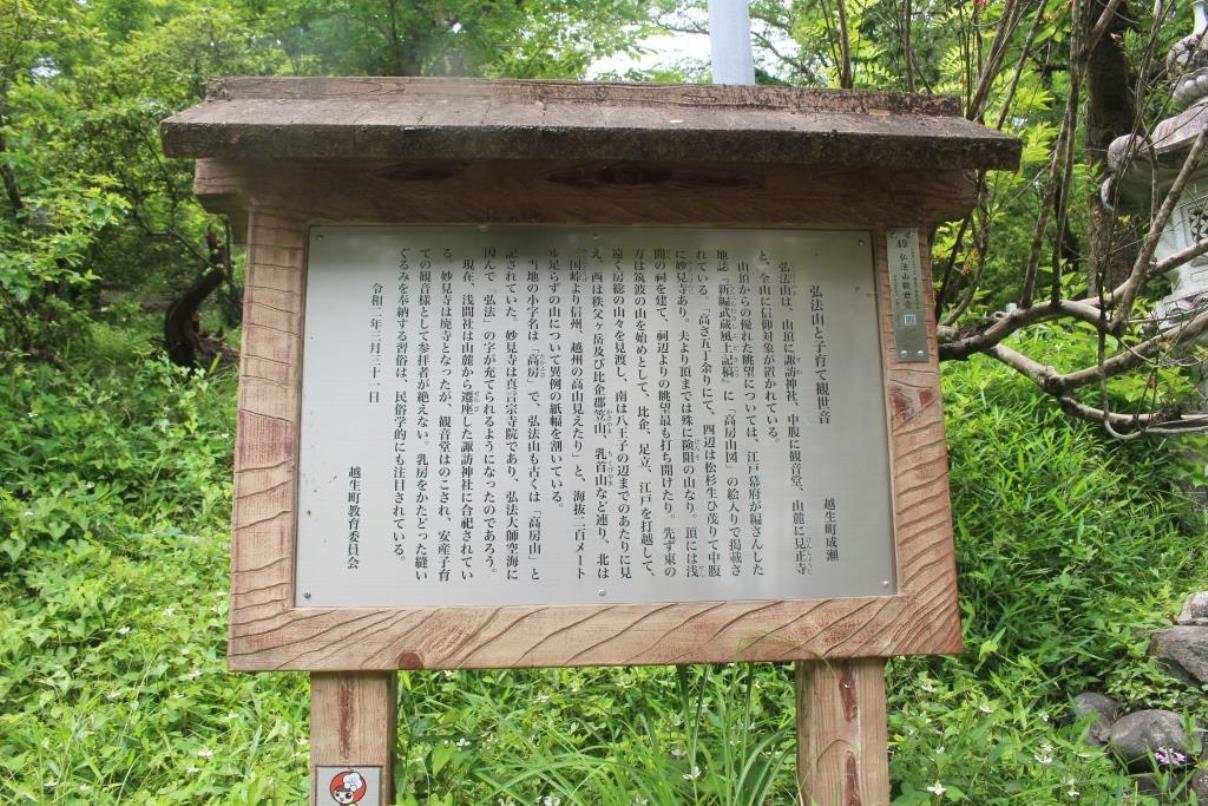 弘法山と子育て観世音
越生町成瀬
弘法山は、山頂に諏訪神社、中腹に観音堂、山麓に見正寺
と、全山に信仰対象が置かれている。
山頂からの優れた眺望については、江戸幕府が編さんした
地誌『新編武蔵風土記稿』に「高房山図」の絵入りで掲載さ
れている。「高さ五丁余りにて、四辺は松杉生ひ茂りて中腹
に妙見寺あり。夫より頂までは殊に険阻の山なり。頂には浅
間の祠を建て、祠辺よりの眺望最も打ち開けたり。先ず東の
方は筑波の山を始めとして、比企、足立、江戸を打越して、
遠く房総の山々を見渡し、南は八王子の辺までのあたりに見
え、西は秩父ヶ岳及び比企郡笠山、乳首山など連り、北は
三国峠より信州、越州の高山見えたり」と、海抜二百メート
ル足らずの山について異例の紙幅を割いている。
当地の小字名は「高房」で、弘法山も古くは「高房山」と
記されていた。妙見寺は真言宗寺院であり、弘法大師空海に
因んで「弘法」の字が充てられるようになったのであろう。
現在、浅間社は山麓から遷座した諏訪神社に合祀されてい
る。妙見寺は廃寺となったが、観音堂はのこされ、安産子育
ての観音様として参拝者が絶えない。乳房をかたどった縫い
ぐるみを奉納する習俗は、民俗学的にも注目されている。
令和二年三月三十一日
越生町教育委員会
49 弘法山観世音